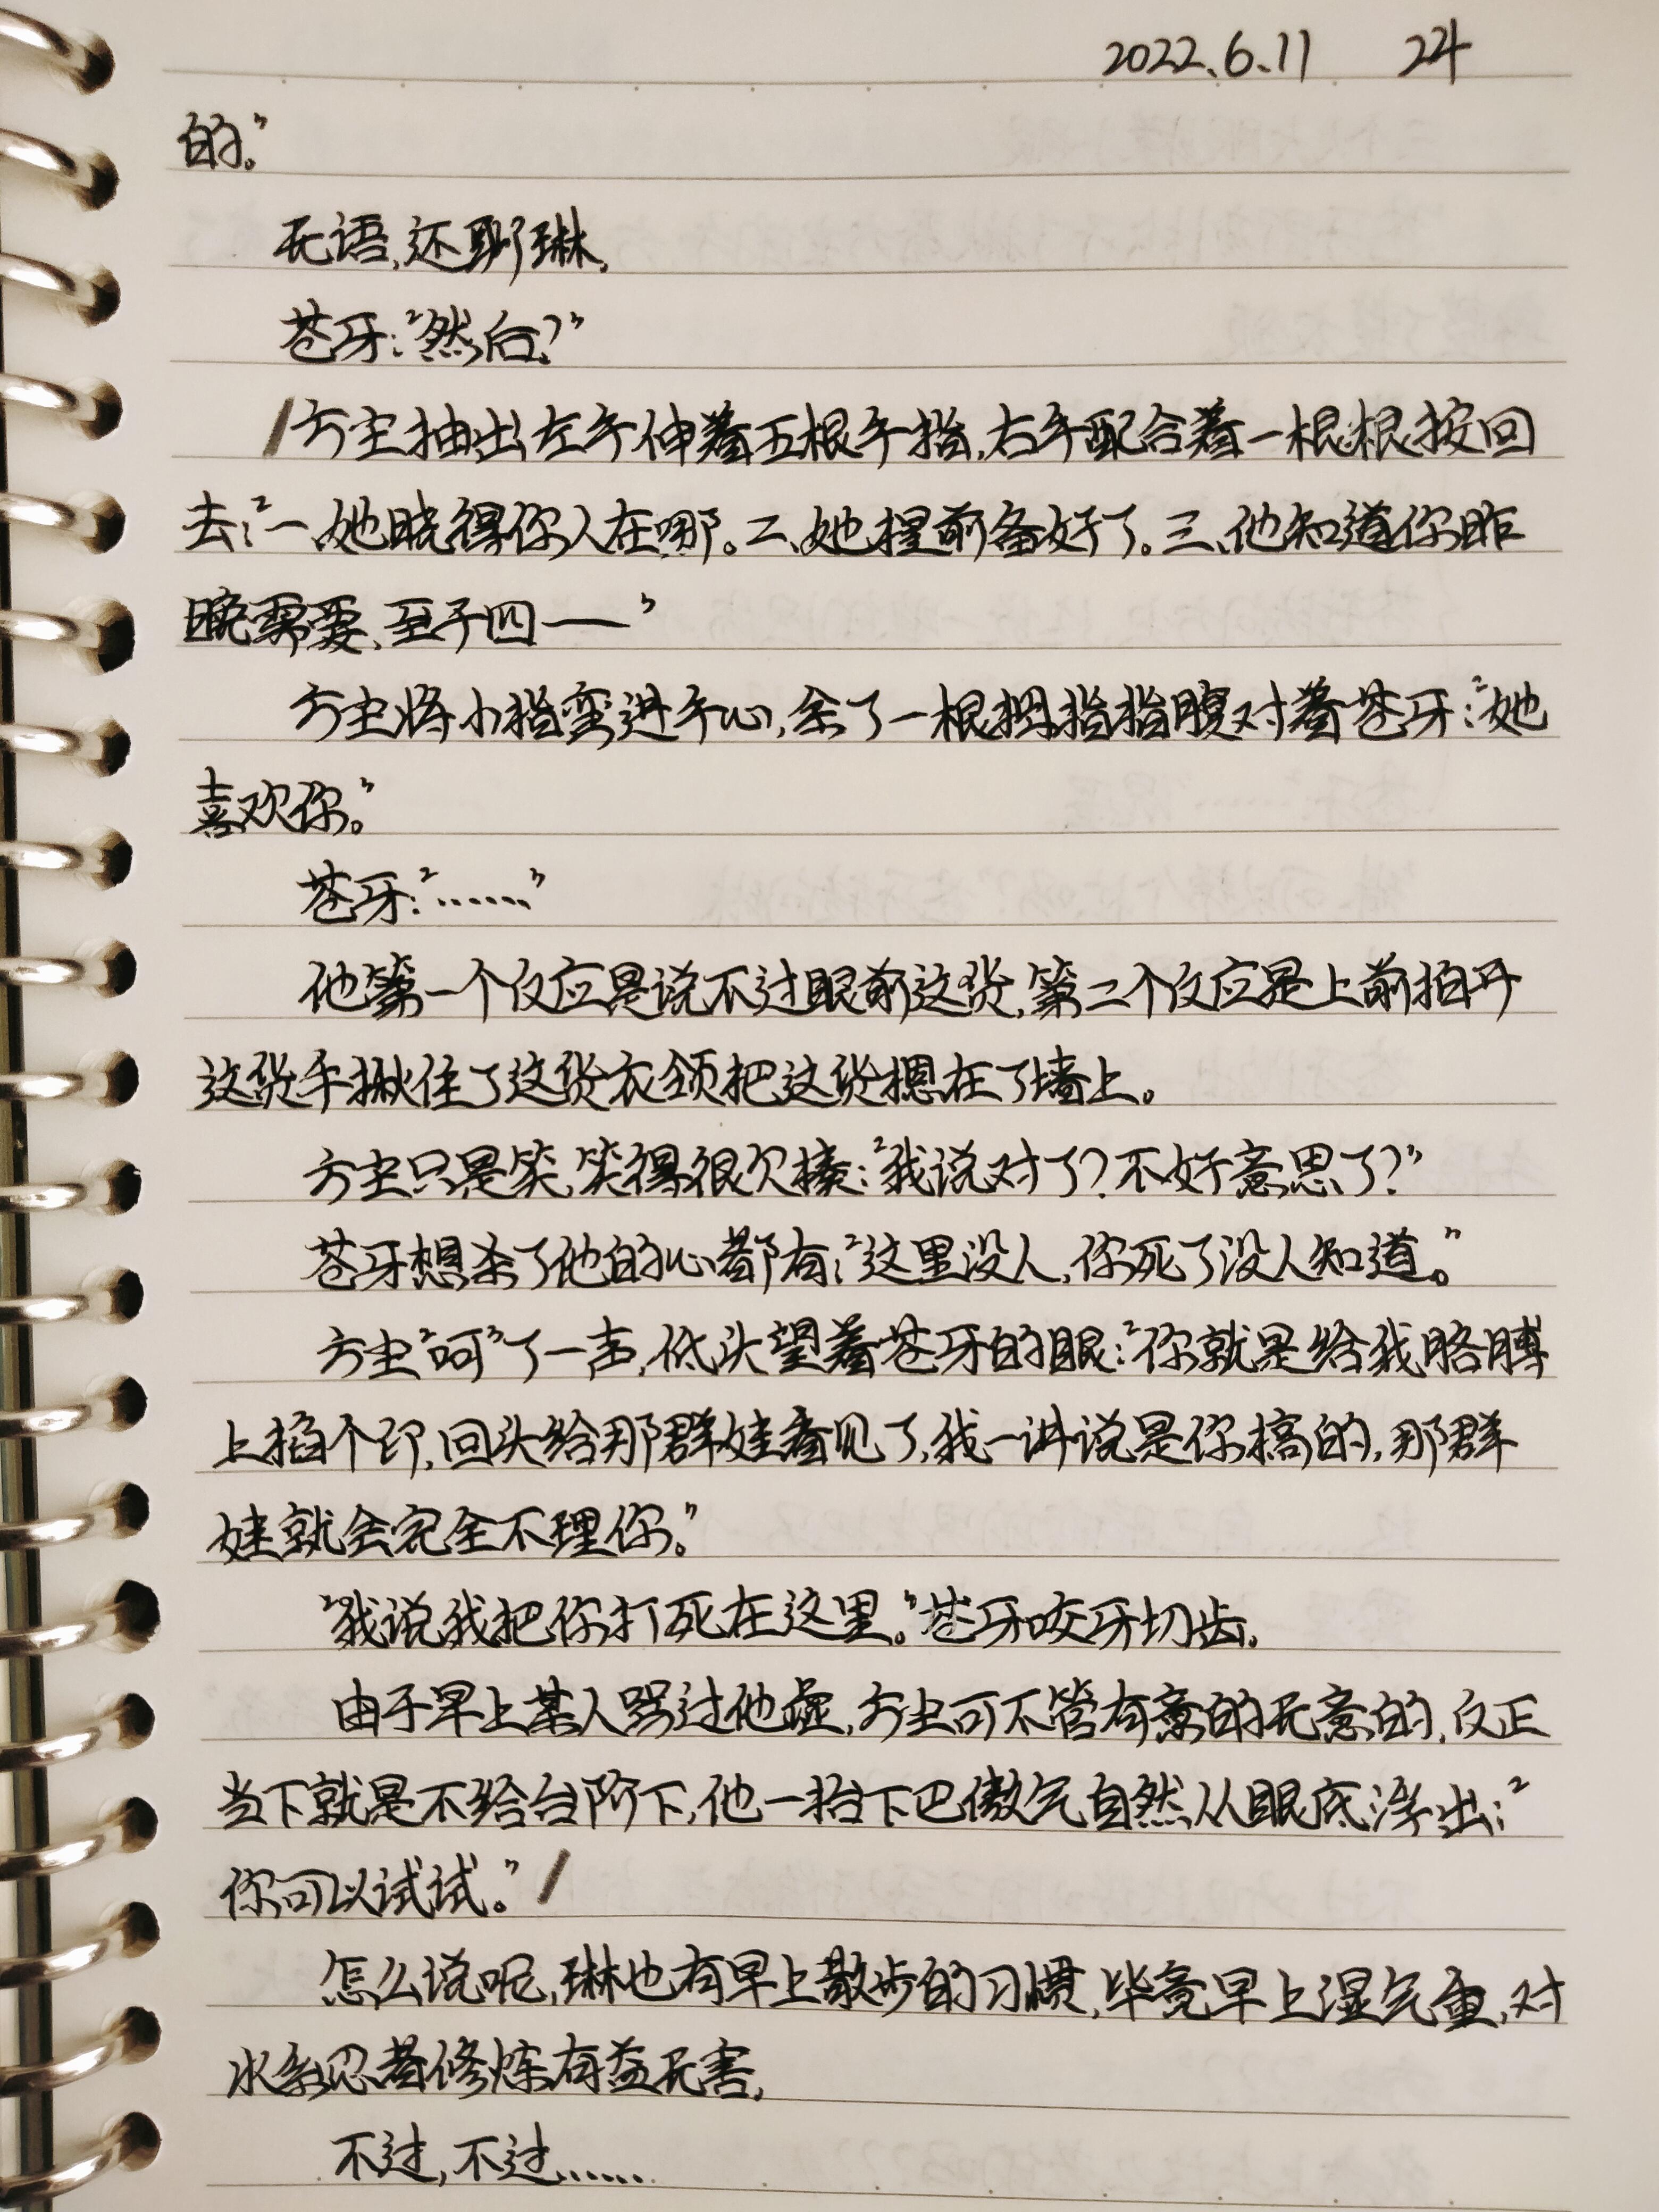 2022.6.11 24
的。”
无语,还即琳,
苍牙:“然后?”
/方尘抽出左手伸着五根手指,右手配合着一根根按回
去:“一、她晓得你人在哪。二、她提前备好了。三、他知道你昨
晚需要,至于四——”
方尘将小指弯进手心,余了一根拇指指腹对着苍牙:“她
喜欢你。”
苍牙:“……”
他第一个反应是说不过眼前这货,第二个反应是上前拍开
这货手揪住了这货衣领把这货摁在了墙上。
方尘只是笑,笑得很欠揍:“我说对了?不好意思了?”
苍牙想杀了他的心都有:“这里没人,你死了没人知道。”
方尘“呵”了一声,低头望着苍牙的眼:“你就是给我胳膊
上掐个印,回头给那群娃看见了,我一讲说是你搞的,那群
娃就会完全不理你。”
“我说我把你打死在这里。”苍牙咬牙切齿。
由于早上某人骂过他虚,方尘可不管有意的无意的,反正
当下就是不给台阶下,他一抬下巴傲气自然从眼底浮出:“
你可以试试。”/
怎么说呢,琳也有早上散步的习惯,毕竟早上湿气重,对
水系忍者修炼有益无害,
不过,不过……